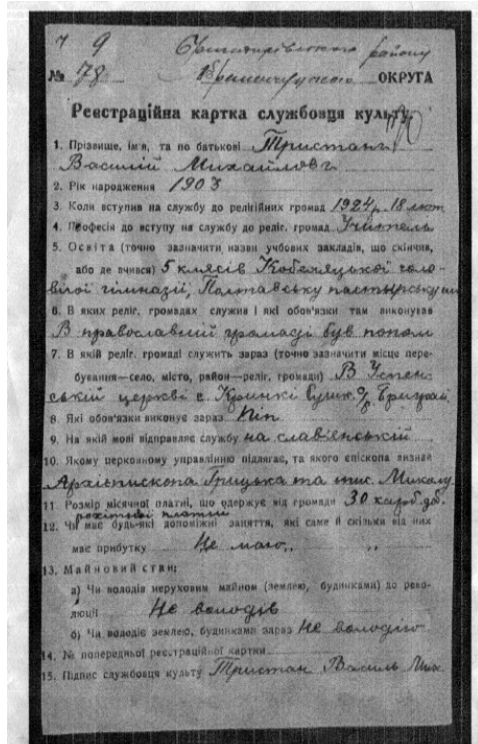 9
району
№ 78 Кременчуцької ОКРУГА
Реєстраційна картка службовця культу.
1. Прізвище, ім'я, та по батькові Тристан
Василій Михайлович
2. Рік народження 1903
3. Коли вступив на службу до релігійних громад 1924 р. 18 лют
4. Професія до вступу на службу до реліг. громад Учитель
5. Освіта (точно зазначити назви учбових закладів, що скінчив,
або де вчився) 5 класів Кобеляцької чоло-
вічої гімназії, Полтавську пастирську
6. В яких реліг. громадах служив і які обов'язки там виконував
В православній громаді був попом
7. В якій реліг. громаді служить зараз (точно зазначити місце пере-
бування—село, місто, район—реліг. громади) В Успен-
ській церкві с. Кринки
8. Які обов'язки виконує зараз Піп
9. На якій мові відправляє службу на славʼянській
10. Якому церковному управлінню підлягає, та якого єпископа визнає
Архієпископа Грицька та єпис. Миколу
11 Розмір місячної платні, що одержує від громади 30 карб.
платні
12. Чи має будь-які допоміжні заняття, які саме й скільки від них
має прибутку Не маю „ „
13. Майновий стан:
а) Чи володів неруховим майном (землею, будинками) до рево-
люції Не володів
б) Чи володіє землею, будинками зараз Не володію
14. № попередньої реєстраційної картки
15. Підпис службовця культу Тристан Василь Мих